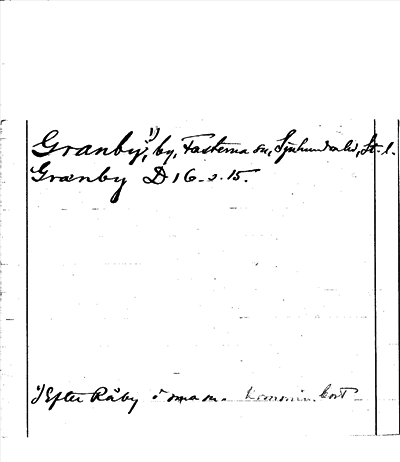 Granby,¹⁾ by, Fasterna sn, Sjuhundra hd, St. l.
Grænby D 16 - 2. 15.
¹⁾ Efter Råby i samma sn.